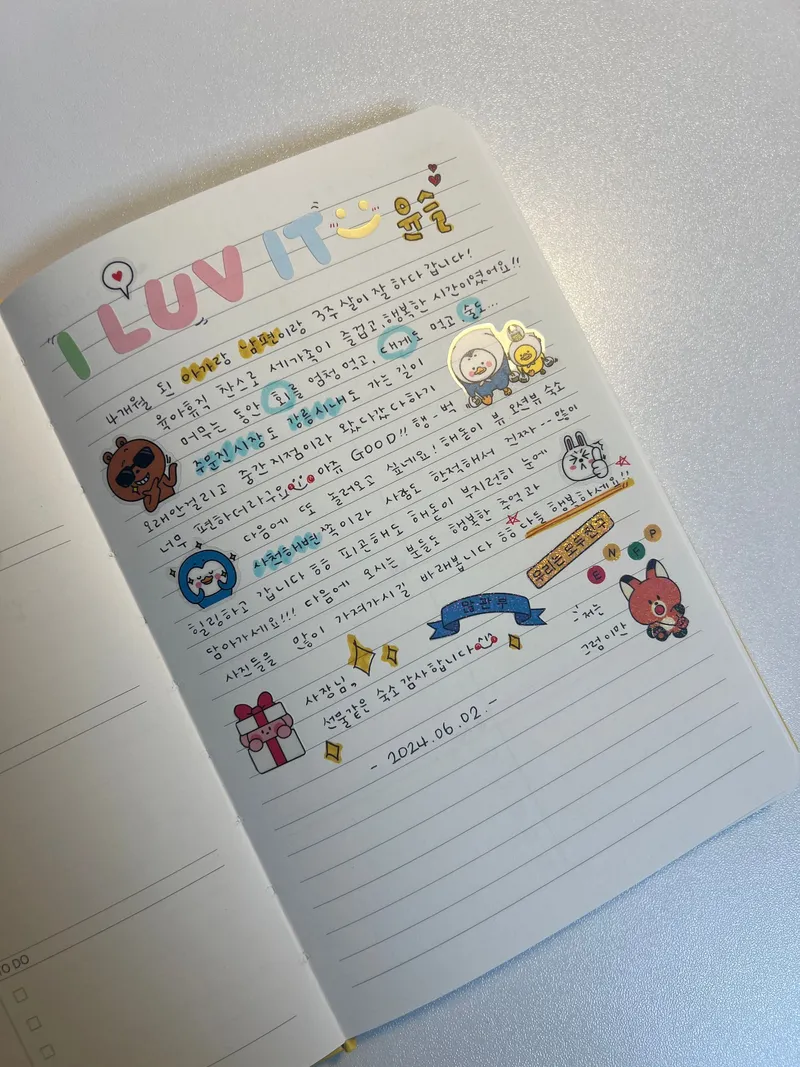 I LUV IT 윤슬
4개월 된 아가랑 남편이랑 3주 살이 잘 하다 갑니다!
육아휴직 찬스로 세가족이 즐겁고, 행복한 시간이였어요!!
머무는 동안 회를 엄청 먹고, 대게도 먹고 술도...
주문진시장도 강릉시내도 가는 길이
오래안걸리고 중간지점이라 왔다갔다하기
너무 편하더라구요 아쥬 GOOD!! 행-벅
다음에 또 놀러오고 싶네요! 해돋이 뷰 오션뷰 숙소
사천해변쪽이라 사람도 한적해서 진짜-- 많이
힐링하고 갑니다ㅎㅎ 피곤해도 해돋이 부지런히 눈에
담아가세요!!! 다음에 오시는 분들도 행복한 추억과
사진들을 많이 가져가시길 바래봅니다ㅎㅎ 다들 행복하세요!!
우리는 모두 친구
ENFP
많관부
사장님,
선물같은 숙소 감사합니다
-저는
그럼 이만
- 2024.06.02. -
TO DO